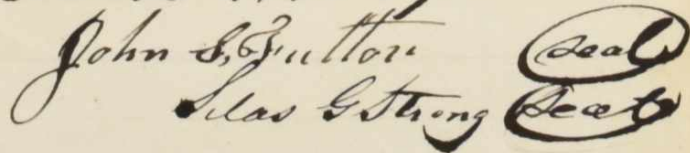 John S. Fulton seal
Silas G Strong seal